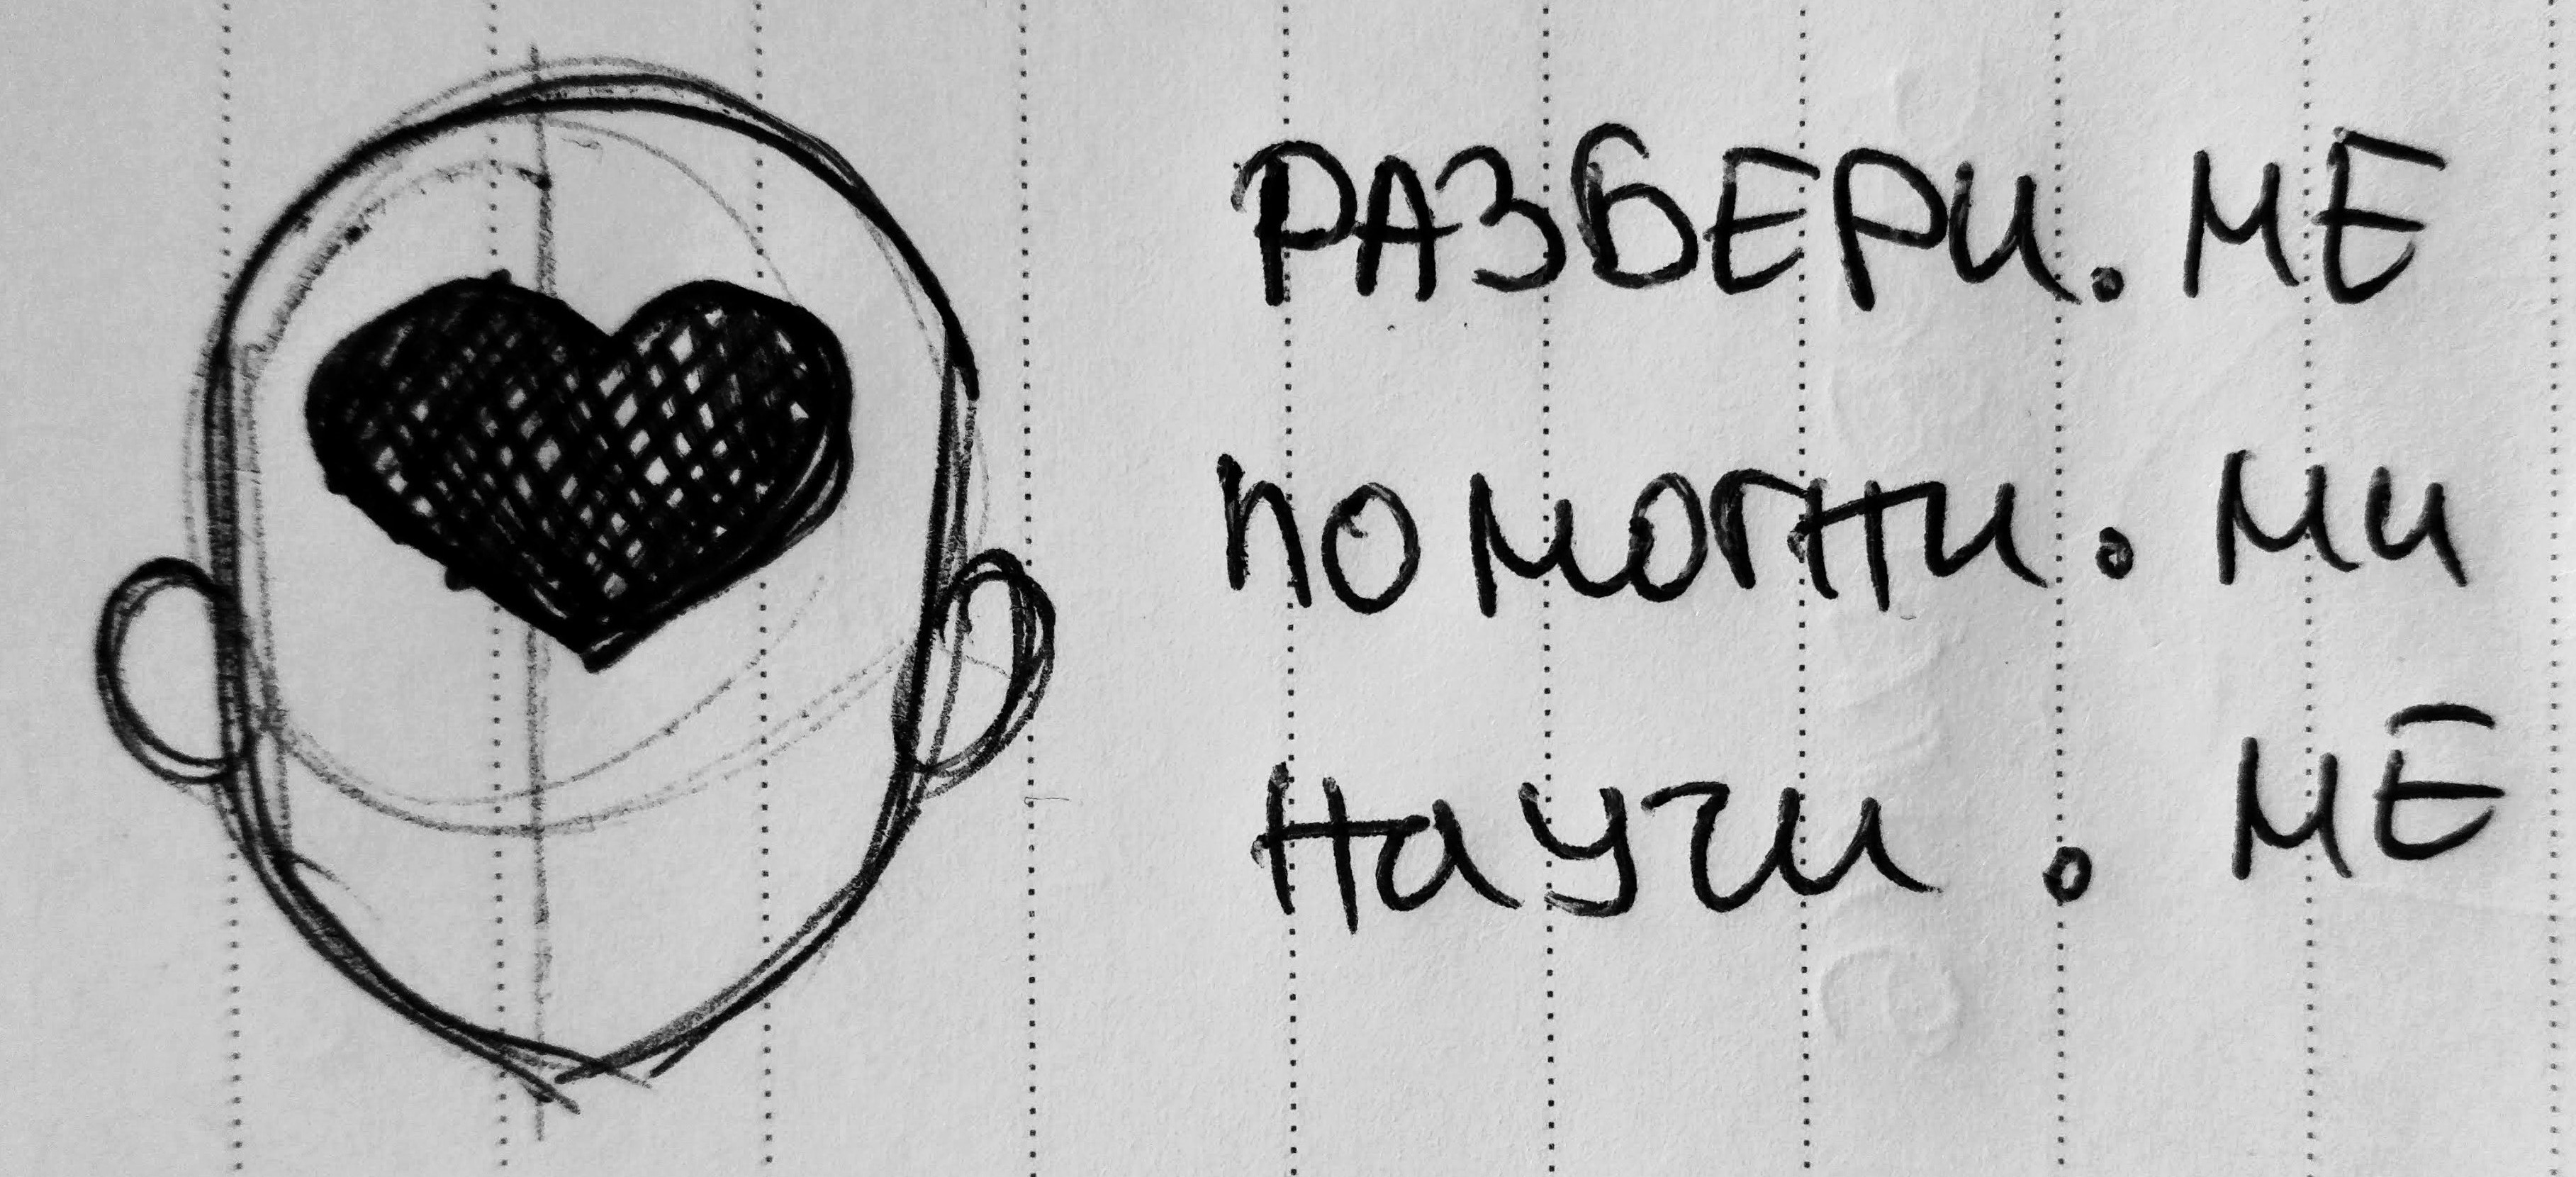 РАЗБЕРИ.МЕ
ПОМОГНИ.МИ
НАУЧИ.МЕ